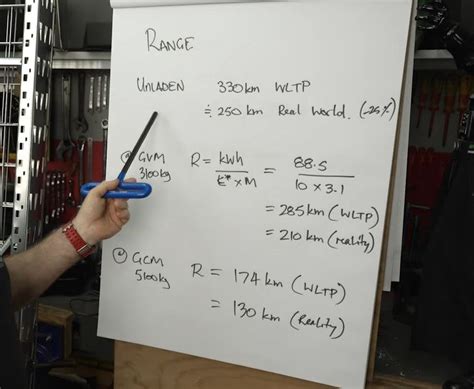 RANGE
UNLADEN 330km WLTP
≑ 250 km Real World. (-25%)
@ GVM 3100kg R = kWh / E* × M = 88.5 / 10 × 3.1
= 285km (WLTP)
= 210 km (reality)
@ GCM 5100kg R = 174 km (WLTP)
= 130 km (Reality)